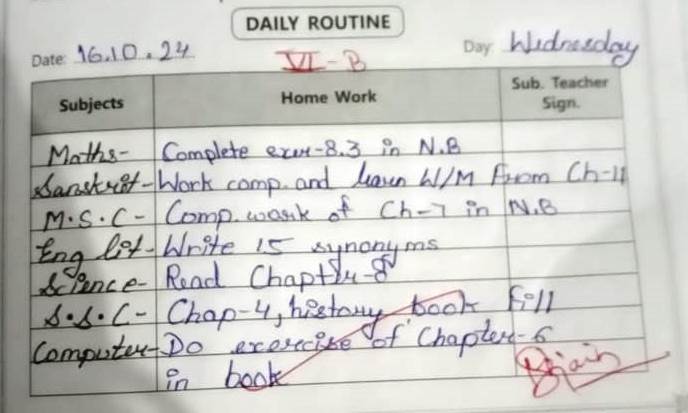 DAILY ROUTINE
Date: 16.10.24 VI-B Day: Wednesday
Subjects Home Work Sub. Teacher Sign.
Maths- Complete exer-8.3 in N.B
Sanskrit- Work comp. and learn W/M From Ch-11
M.S.C- Comp. work of Ch-7 in N.B
Eng lit- Write 15 synonyms
Science- Read Chapter-8
S.S.C- Chap-4, history book fill
Computer- Do exercise of Chapter-6
in book